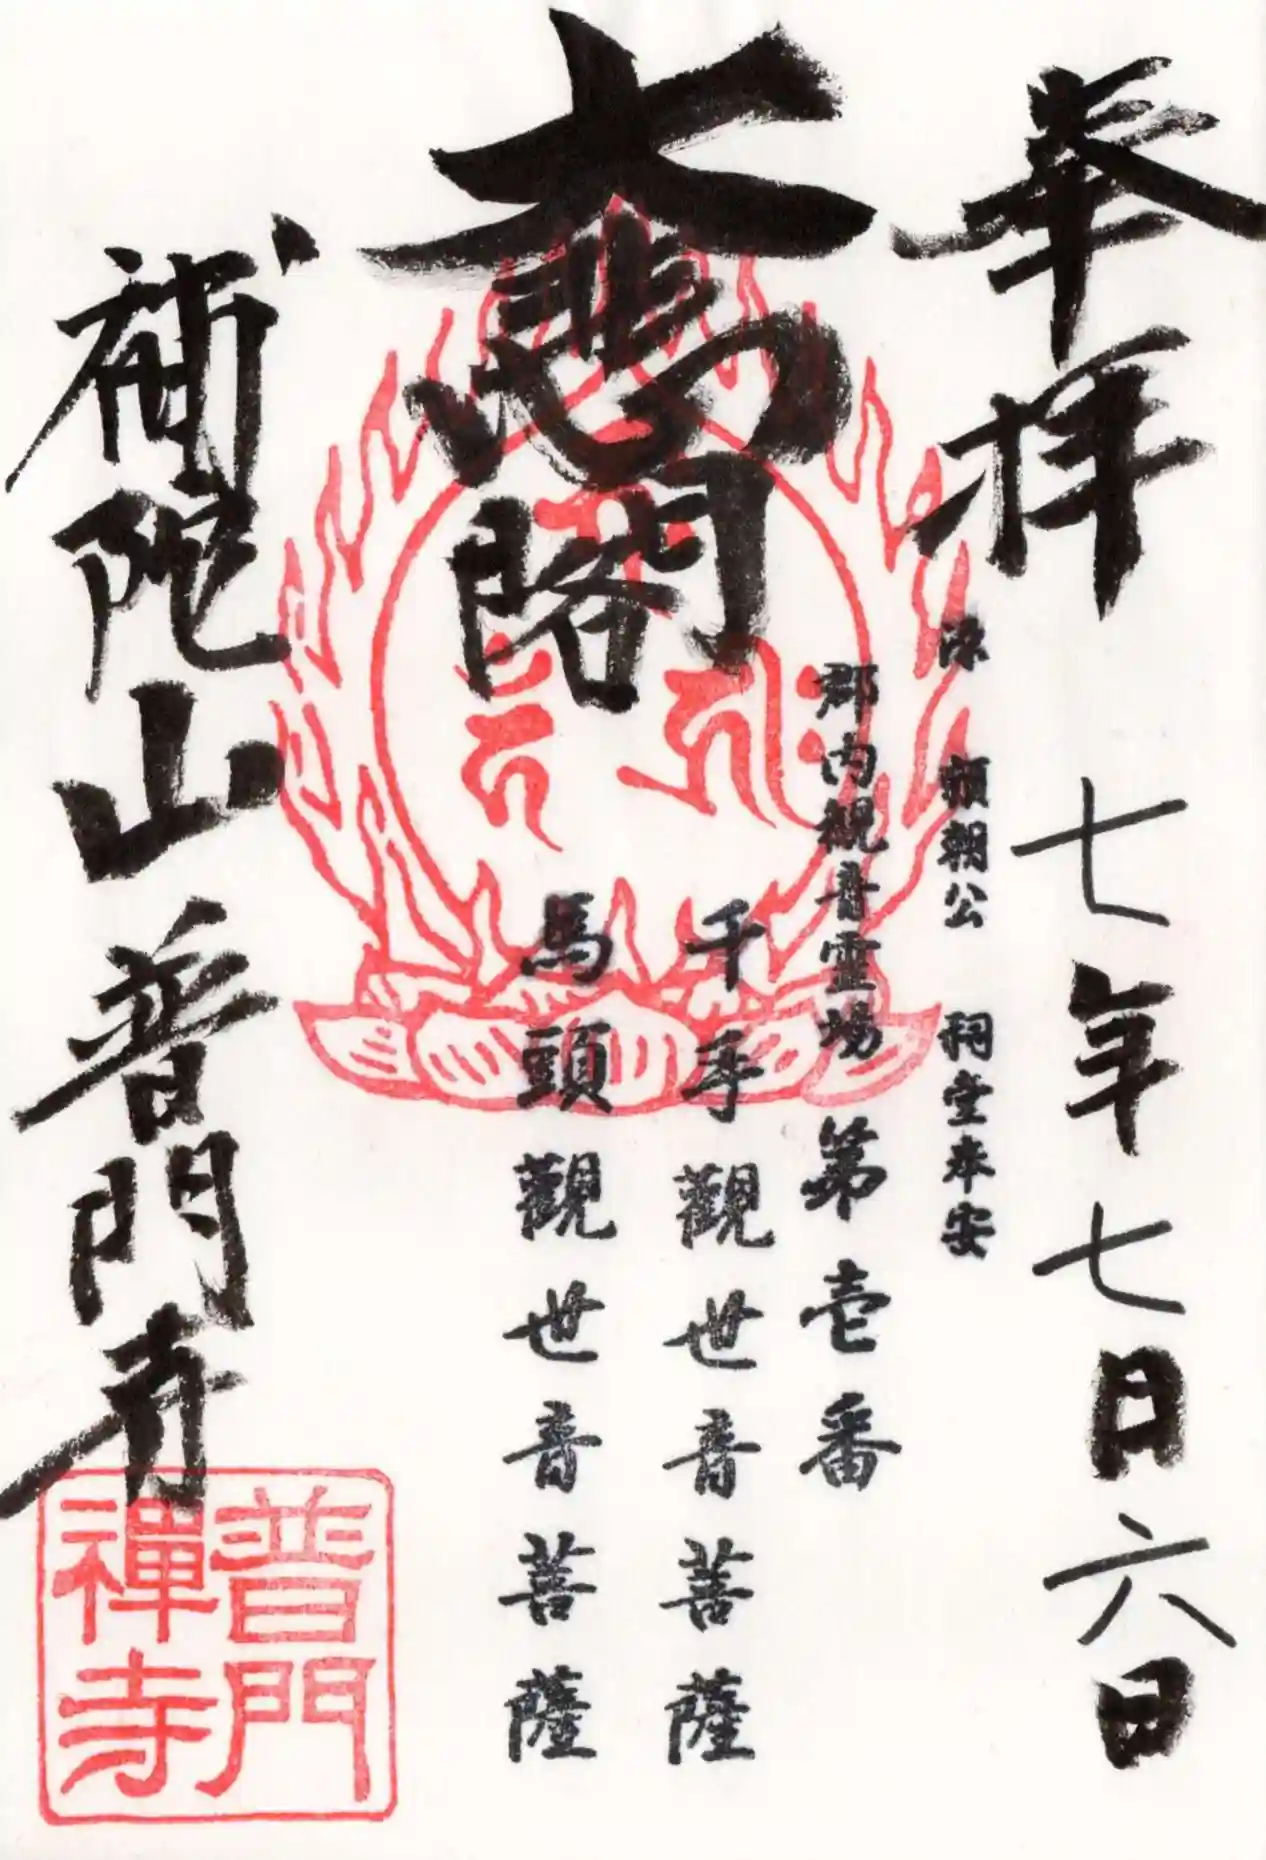 奉拝
七年七日六日
源 頼朝公 祠堂奉安
郡内観音霊場 第壱番
千手觀世音菩薩
馬頭觀世音菩薩
大悲閣
補陀山普門寺
普門
禅寺